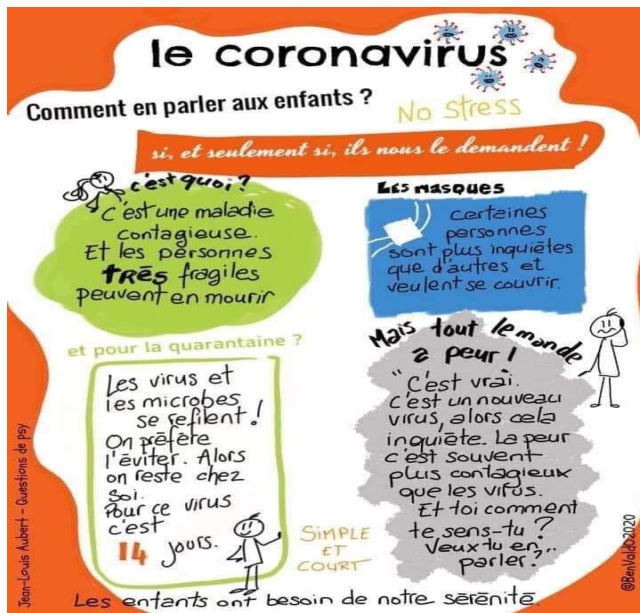 le coronavirus
Comment en parler aux enfants ?
No stress
si, et seulement si, ils nous le demandent !
c'est quoi ?
C'est une maladie
contagieuse.
Et les personnes
TRÈS fragiles
peuvent en mourir
Les masques
certaines
personnes
sont plus inquiètes
que d'autres et
veulent se couvrir.
et pour la quarantaine ?
Les virus et
les microbes
se refilent !
On préfère
l'éviter. Alors
on reste chez
soi.
Pour ce virus
c'est
14 jours.
SIMPLE
ET
COURT
Mais tout le monde
a peur !
"C'est vrai.
c'est un nouveau
virus, alors cela
inquiète. La peur
c'est souvent
plus contagieux
que les virus.
Et toi comment
te sens-tu ?
Veux tu en...
parler ?
Les enfants ont besoin de notre sérénité.
Jean-Louis Aubert - Questions de psy
@BenValdo2020